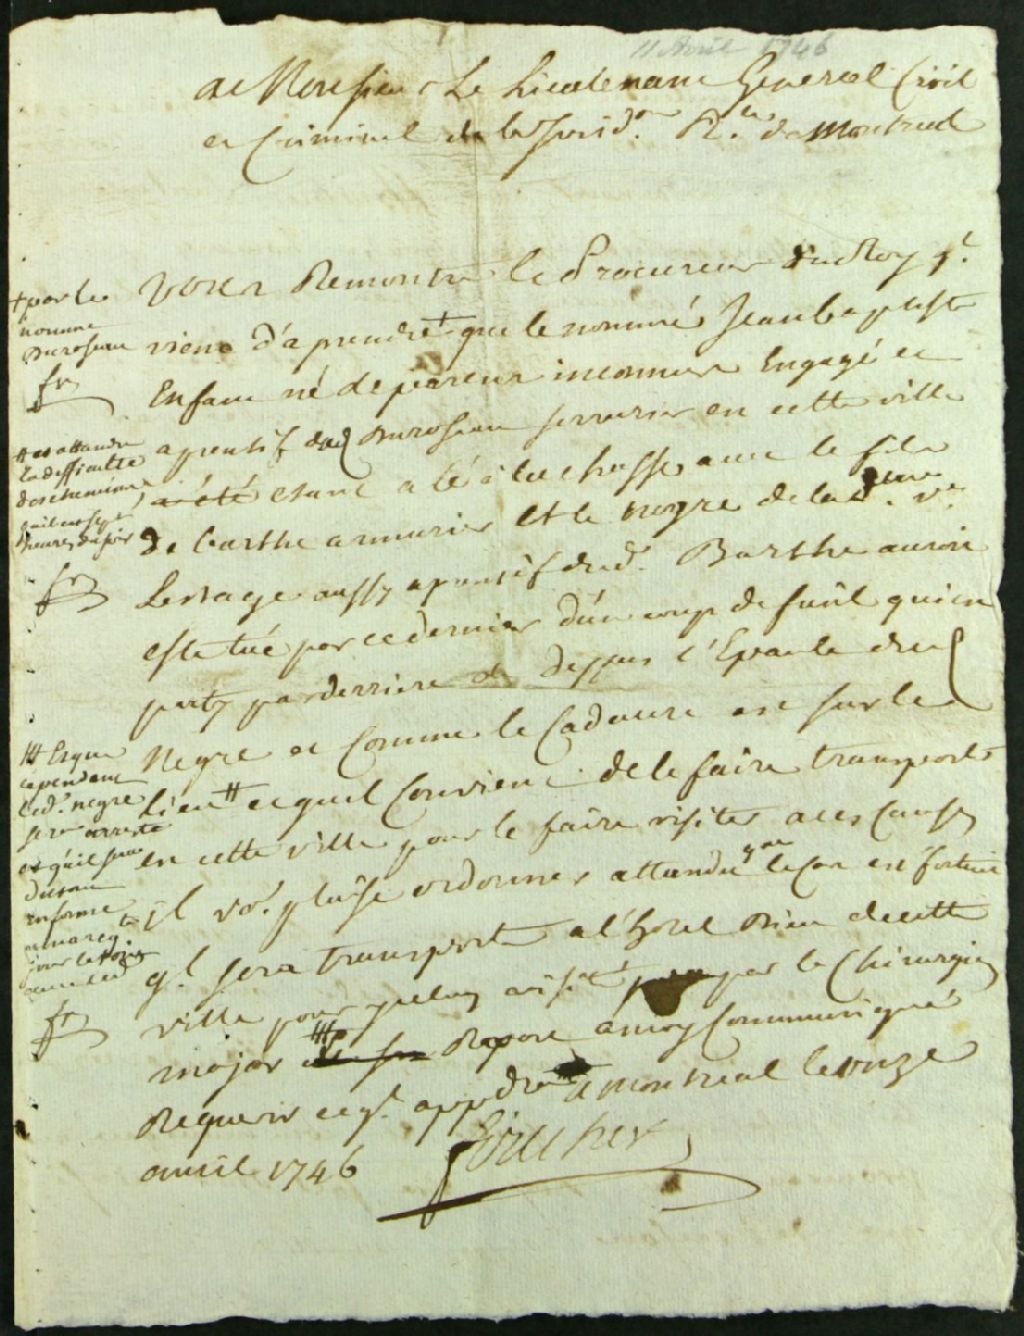 11 Avril 1746
a Monsieur Le Lieutenant General Civil
et Criminel de la Jurid.on R.le de Montreal
Vous Remontre le Procureur du Roy q.l
vient d'aprendre + que le nommé Jean baptiste
Enfant né de parens inconnus Engagé et
aprentif dud Durosseau serrurier en cette ville
a été estant a lé à la chasse, avec le fils
de barthe armurier et le negre de la d. v.e
Lestage aussy aprentif dud. Barthe auroit
esté tué par ce dernier d'un coup de fusil qui est
party par derriere et dessus l'Epaule dud
Negre et Comme le Cadavre est sur le
Lieu ++ et quil Convient de le faire transporter
en cette ville pour le faire visiter a ces Causes
jl vo.s plaise ordonner attandu que le cas est fortuit
q.l sera transporté a l'hotel Dieu de cette
ville pour y estre visité par le Chirurgien
major Raport a moy Communiqué
Requerir ce q.l app.dra a Montreal le onze
avril 1746 foucher
+ par le
nommé
Durosseau
fr
++ attandu
la difficulté
des chemins
quil est sept
heures du soir
fr
+++ Et que
cependant
led. negre
sera arresté
et quil sera
du tout
informé
fr